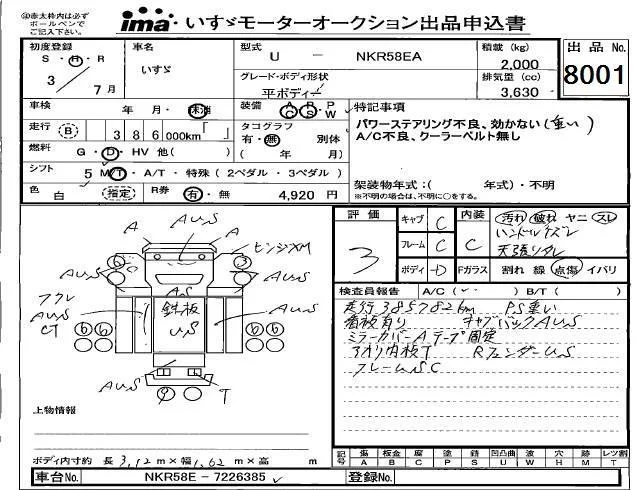 ㊟赤太枠内は必ず
ボールペンで
ご記入下さい。
ima いすゞモーターオークション出品申込書
初度登録
S・H・R
3 / 7月
車名
いすゞ
型式
U － NKR58EA
グレード・ボディ形状
平ボディー
積載 (kg)
2,000
排気量 (cc)
3,630
出品 No.
8001
車検
年 月・検
走行 (B) 386,000km「 」
燃料 G・D・HV 他( )
シフト 5 M/T・A/T・特殊 (2ペダル・3ペダル)
色 白 (指定)
R券 有・無 4,920 円
装備 A C P S P W
タコグラフ
有・無 別体
( 年 月)
特記事項
パワーステアリング不良、効かない(重い)
A/C不良、クーラーベルト無し
架装物年式:( 年式)・不明
※不明の場合は、不明に○をする。
評価
3
キャブ C
フレーム C
ボディ D
内装 C
Fガラス
汚れ 破れ ヤニ スレ
ハンドルクズレ
天張リタレ
割れ 線 点傷 イバリ
検査員報告 A/C( ) B/T( )
走行385782km PS重い
看板有り キャブバックAUS
ミラーカバーAテープ固定
アオリ内板T RフェンダーUS
フレームSC
A AUS A
AUS ヒンジXM
6 3
AUS AUS
AS
鉄板
US
AUS
CT
AUS
6 6 6 6
AUS
9 T
上物情報
ボディ内寸約 長 3.12 m×幅 1.62 m×高 m
記号
傷 A
板金 B
腐 C
塗 P
錆 S
凹凸曲 U
波 W
穴 H
跡 M
レツ割 T
車台No. NKR58E－7226385
登録No.